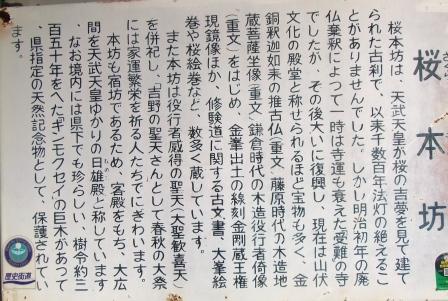 桜本坊
桜本坊は、天武天皇が桜の吉夢を見て建て
られた古刹で、以来千数百年法灯の絶えるこ
とがありませんでした。しかし明治初年の廃
仏棄釈によって一時は寺運も衰えた受難の寺
でしたが、その後大いに復興し、現在は山伏
文化の殿堂と称せられるほど宝物も多く、金
銅釈迦如来の推古仏(重文)藤原時代の木造地
蔵菩薩坐像(重文)鎌倉時代の木造役行者倚像
(重文)をはじめ、金峯出土の線刻金剛蔵王権
現鏡像ほか、修験道に関する古文書、大峯絵
巻や桜絵巻など、数多く蔵しています。
また本坊は役行者威得の聖天(大聖歓喜天)
を併祀し、吉野の聖天さんとして春秋の大祭
には家運繁栄を祈る人たちでにぎわいます。
本坊も宿坊であるため、客殿をもち、大広
間を天武天皇ゆかりの日雄殿と称しています
なお境内には県下でも珍らしい、樹令約三
百五十年を経た『ギンモクセイ』の巨木があって
県指定の天然記念物として、保護されてい
ます。
歴史街道